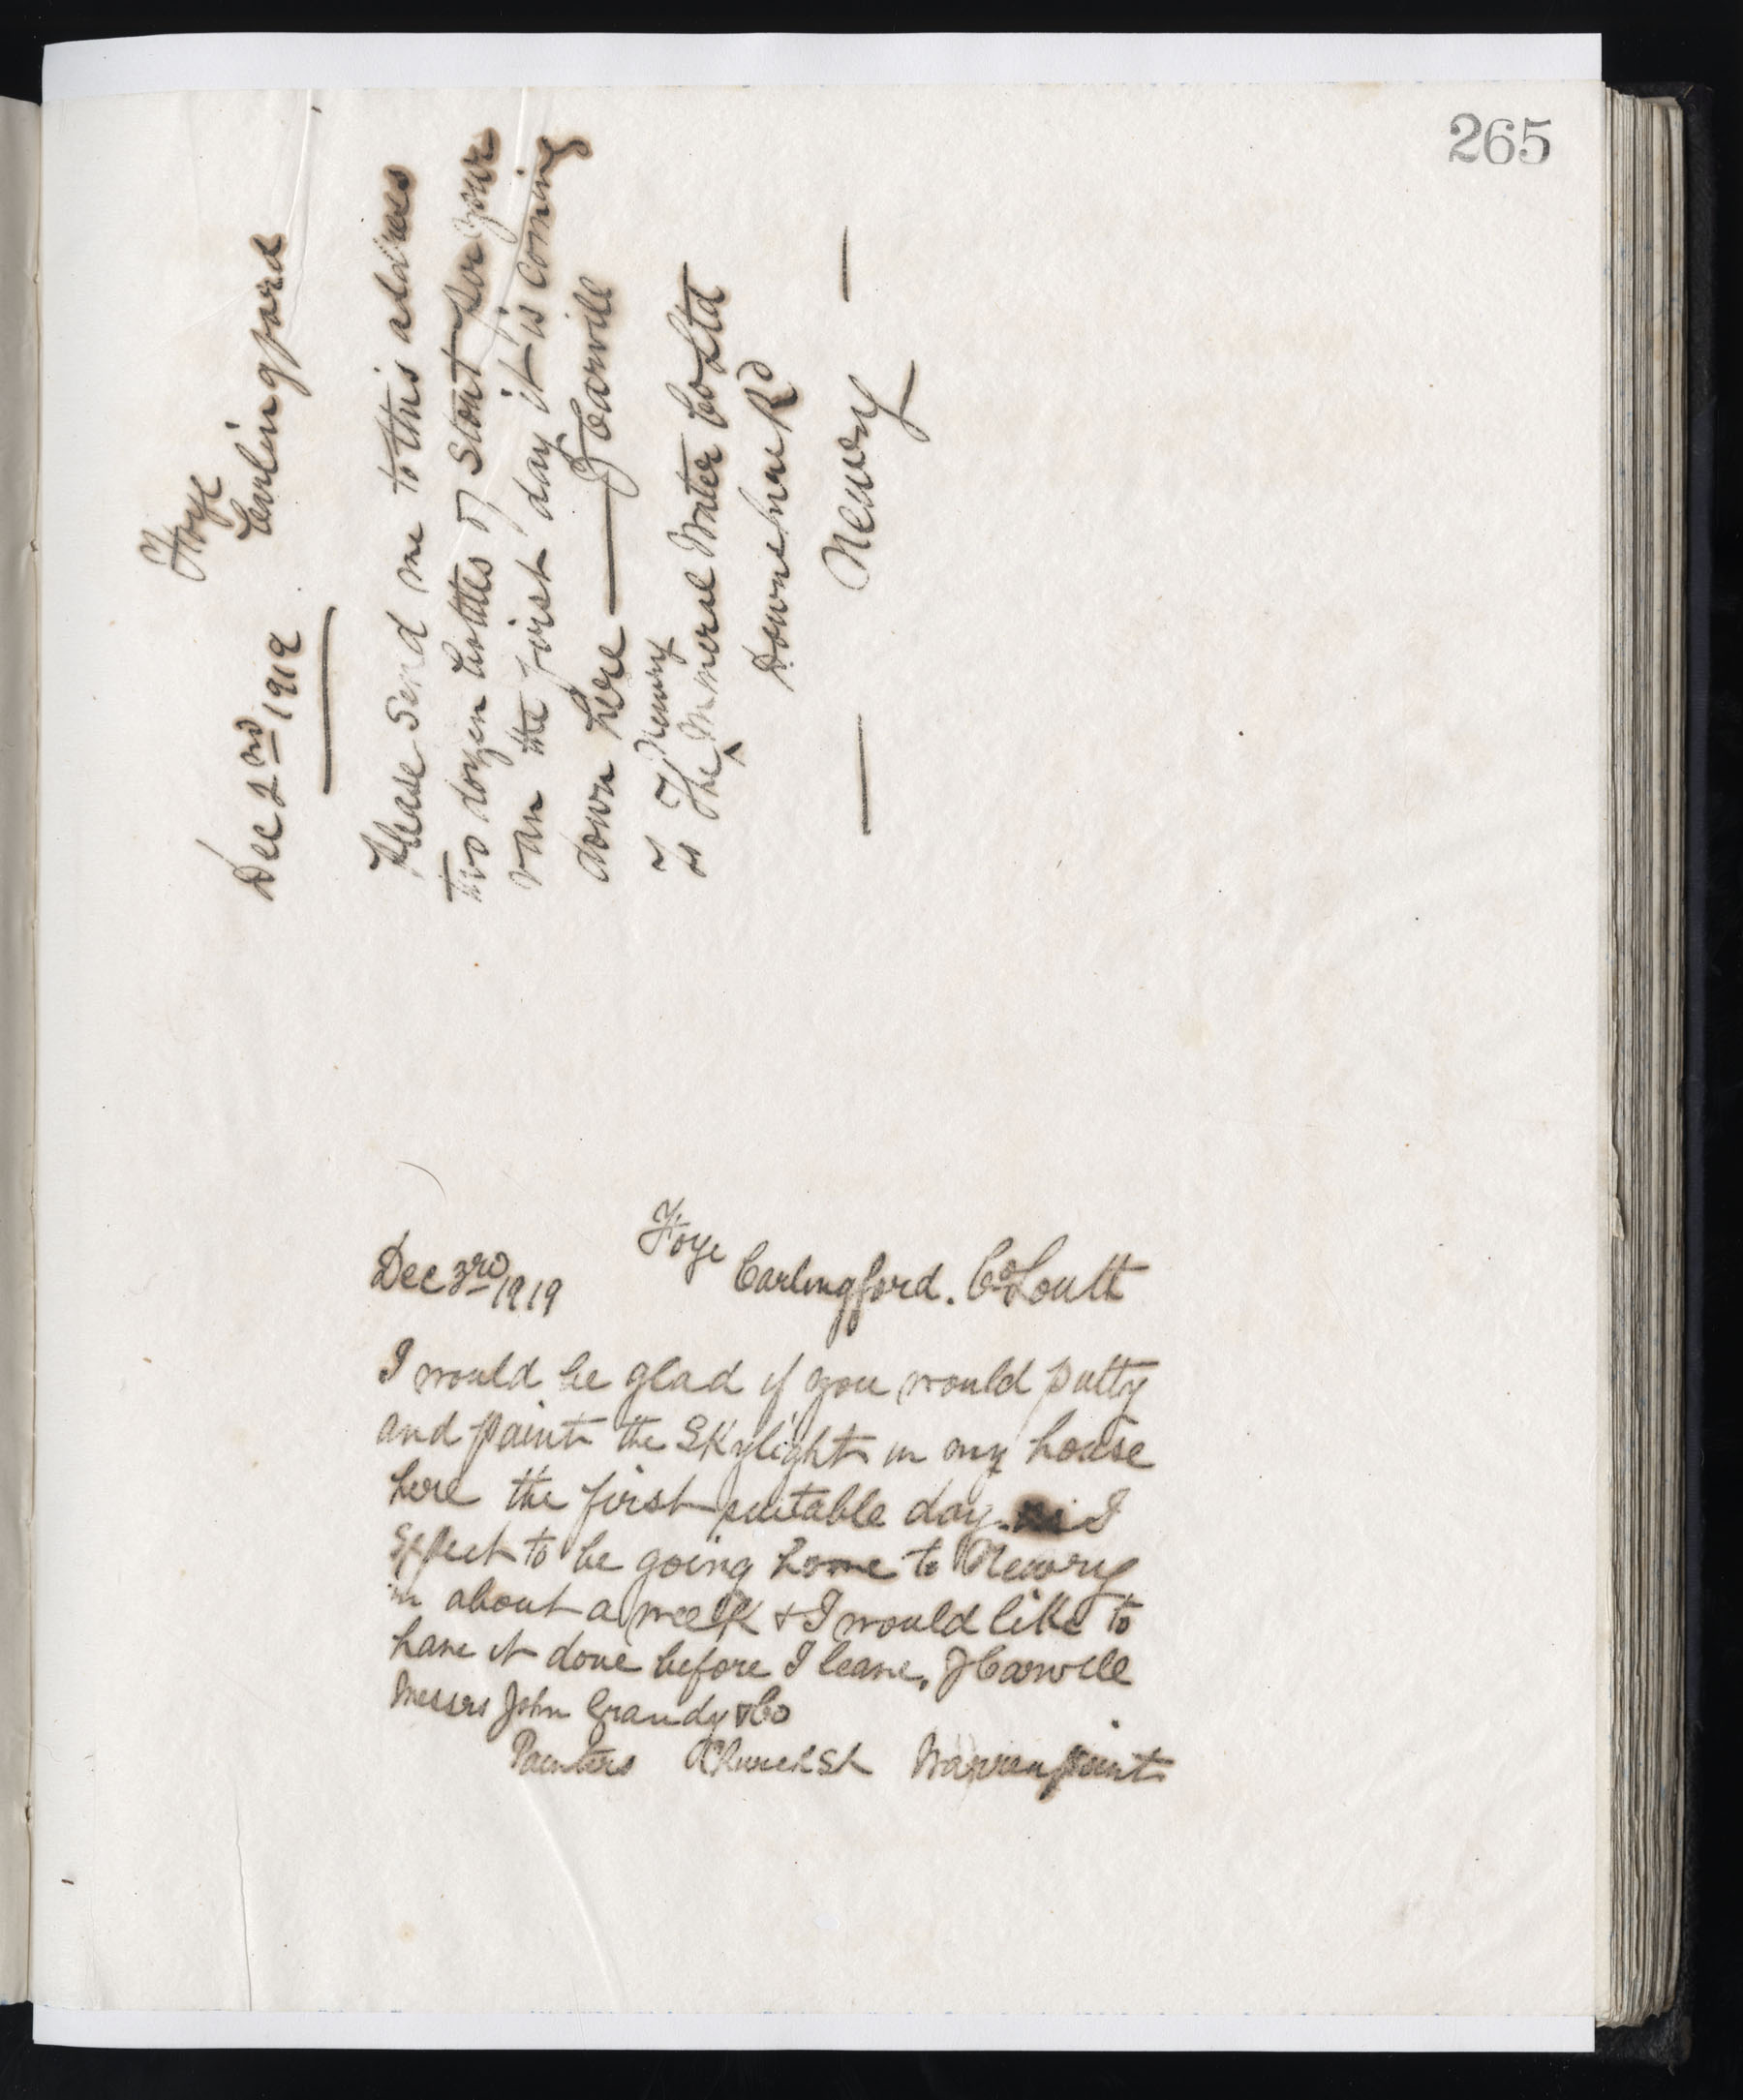 265
Foye
Dec 2nd 1919 Carlingford
Please Send me to this address
two dozen bottles of Stout per your
van the first day it is coming
down here — J Carvill
To Newry
To The ^ Mineral Water Co Ltd
Downshire Rd
— Newry —
Foye
Dec 3rd 1919 Carlingford. Co Louth
I would be glad if you would putty
and paint the Skylight in my house
here the first suitable day. I
Expect to be going home to Newry
in about a week & I would like to
have it done before I leave, J Carvill
Messrs John Grandy & Co
Painters Church St Warrenpoint